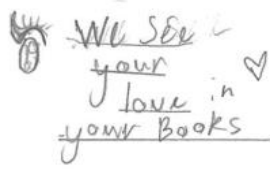 We see
your
love in
your Books